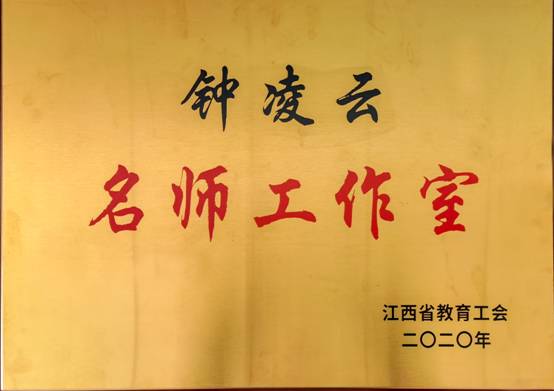 钟凌云
名师工作室
江西省教育工会
二〇二〇年